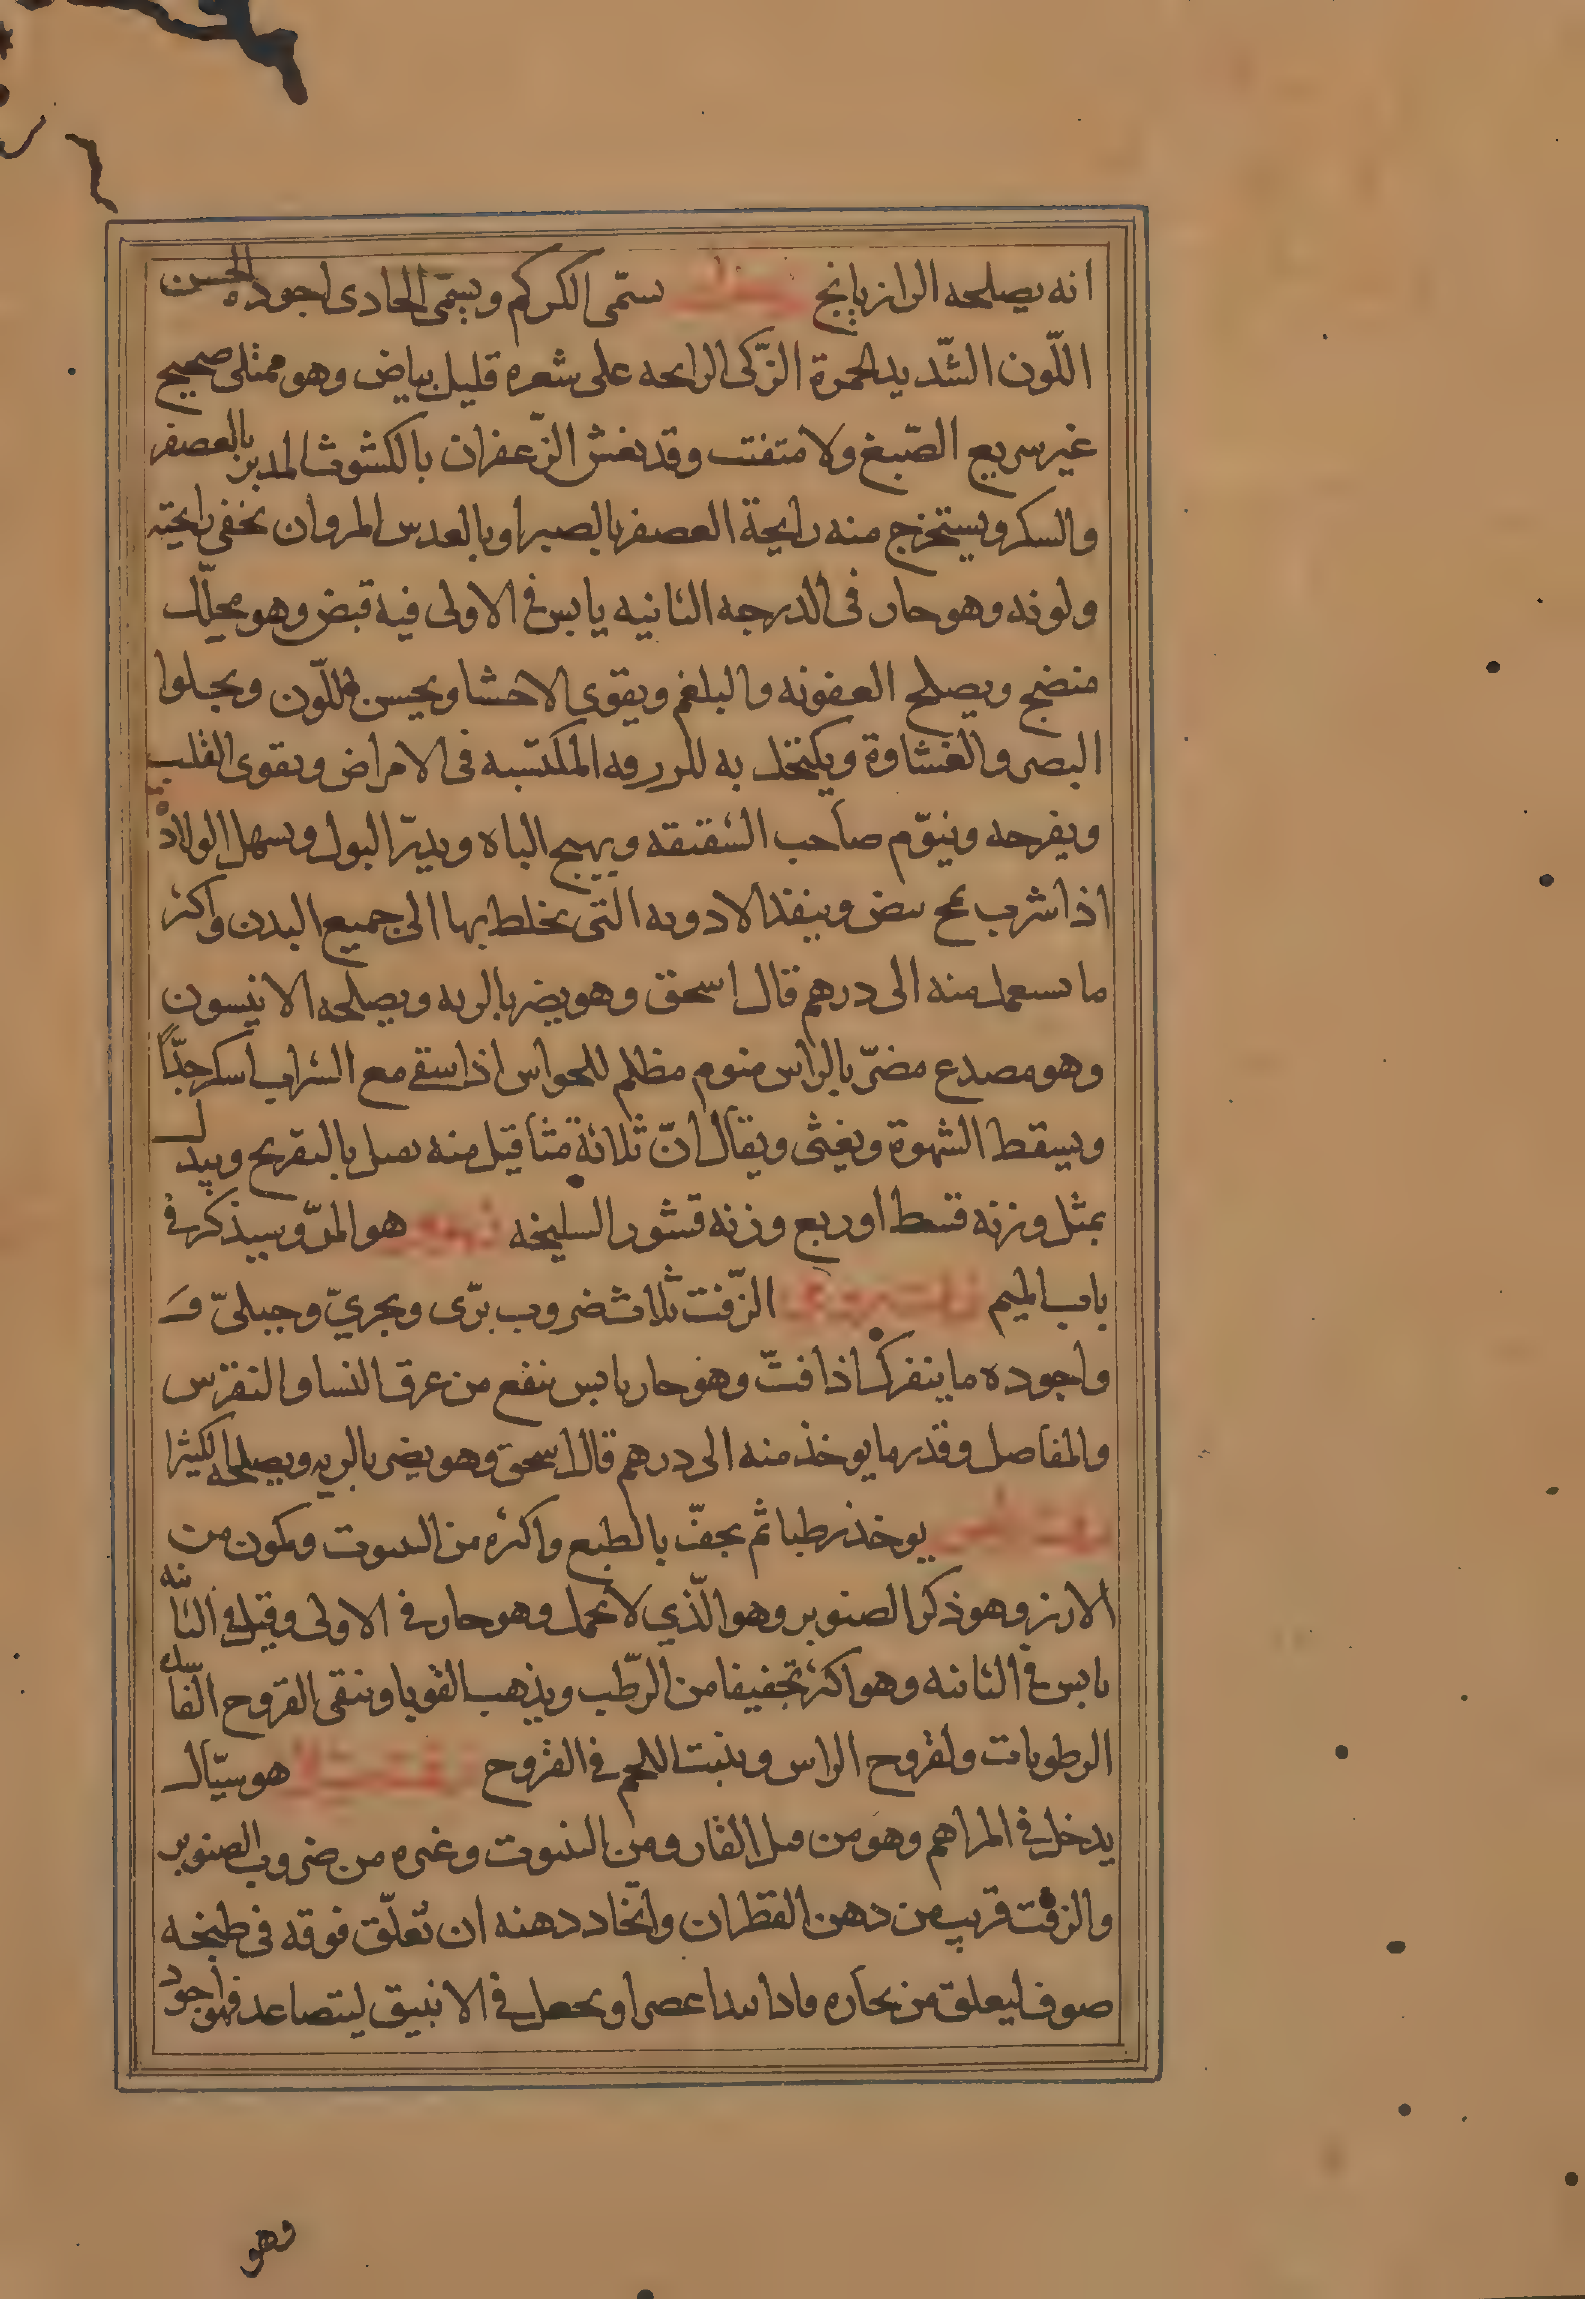 انه يصلحه الرازيانج يسمّى الكركم ويسمّى الجادى اجوده الحسن
اللّون الشّديد الحمرة الزّكى الرايحه على شعره قليل بياض وهو ممتلى صحيح
غير سريع الصّبغ ولا متفتت وقد يغش الزّعفران بالكشوث المدبر بالعصفر
والسكر ويستخرج منه رايحة العصفر بالصبر او بالعدس المر وان تخفى رايحته
ولونه وهو حار فى الدرجه الثانيه يابس فى الاولى فيه قبض وهو محلّل
منضج ويصلح العفونه والبلغم ويقوى الاحشا ويحسن اللّون ويجلوا
البصر والغشاوة ويكتحل به للزرقه المكتسبه فى الامراض ويقوى القلب
ويفرحه وينوّم صاحب الشقيقه ويهيج الباه ويدرّ البول ويسهل الولادة
اذا شرب بمح بيض وينفذ الادويه التى يخلط بها الى جميع البدن واكثر
ما يستعمل منه الى درهم قال اسحق وهو يضر بالريه ويصلحه الانيسون
وهو مصدع مضرّ بالراس منوم مظلم للحواس اذا سقى مع الشراب اسكر جدّاً
ويسقط الشهوة ويغثى ويقال انّ ثلاثة مثاقيل منه يقتل بالتفريح ويبدل
بمثل وزنه قسط او ربع وزنه قشور السليخه هو المرّ وسيذكر فى
باب الميم الزّفت ثلاث ضروب برّى وبحريّ وجبلىّ
واجوده ما ينفرك اذا فتّ وهو حار يابس ينفع من عرق النسا والنقرس
والمفاصل وقدر ما يوخذ منه الى درهم قال اسحق وهو يضر بالريه ويصلحه الكثيرا
يوخذ رطبا ثم يجفّ بالطبع واكثره من التنوب ويكون من
الارز وهو ذكر الصنوبر وهو الّذي لا يحمل وهو حار فى الاولى وقيل فى الثانيه
يابس فى الثانيه وهو اكثر تجفيفا من الرّطب ويذهب القوبا وينقى القروح
الرطوبات ولقروح الراس وينبت اللحم فى القروح هو سيّال
يدخل فى المراهم وهو من قبل القار ومن التنوب وغيره من ضروب الصنوبر
والزفت قريب من دهن القطران واتّخاد دهنه ان تعلّق فوقه فى طبخه
صوف ليعلق من بخاره فاذا ندا عصر او يجعل فى الانبيق ليتصاعد فهو اجود
وهو